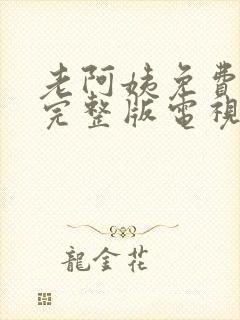 老阿姨免費
完整版電視
龍金花